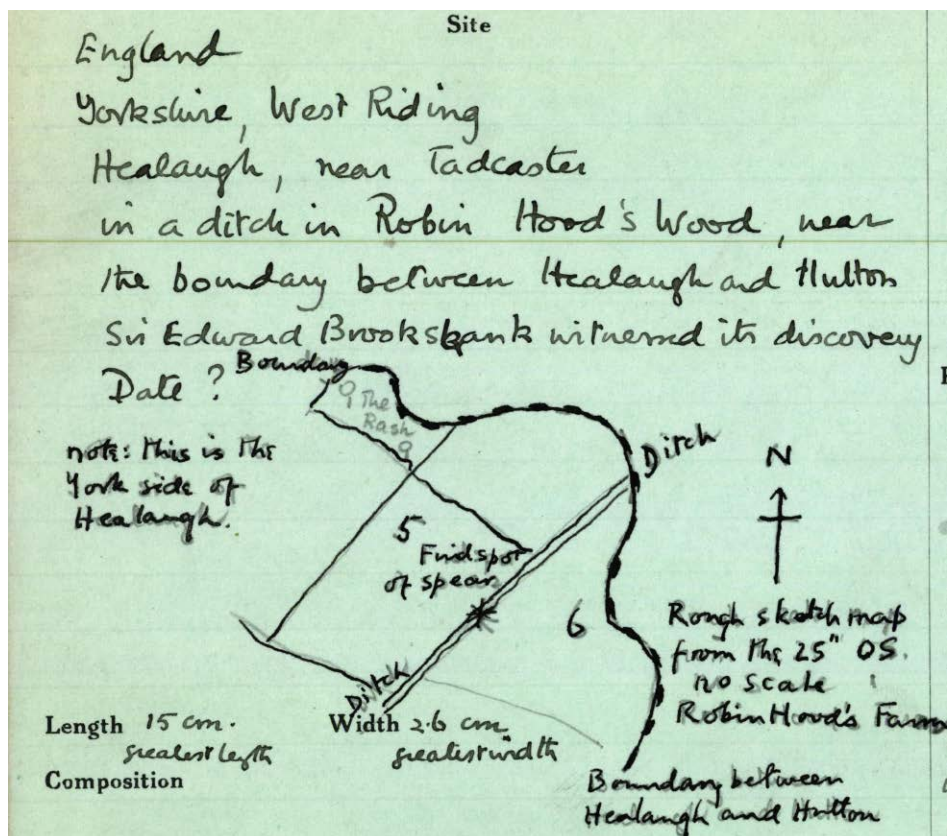 Site
England
Yorkshire, West Riding
Healaugh, near Tadcaster
in a ditch in Robin Hood's Wood, near
the boundary between Healaugh and Hutton
Sir Edward Brooksbank witnessed its discovery
Date ?
Boundary
The
Rash
note: this is the
York side of
Healaugh.
Ditch
N
5
Findspot
of spear
6
Rough sketch map
from the 25" OS.
no scale
Robin Hood's Farm
Ditch
Length 15 cm.
greatest length
Width 2.6 cm.
greatest width
Composition
Boundary between
Healaugh and Hutton